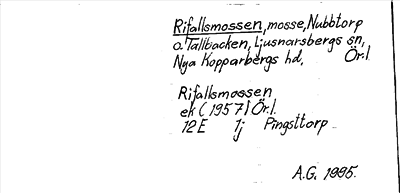 Rifallsmossen, mosse, Nubbtorp
o. Tallbacken, Ljusnarsbergs sn,
Nya Kopparbergs hd, Ör.l
Rifallsmossen
ek (1957) Ör.l.
12E 1j Pingsttorp
A.G. 1995.